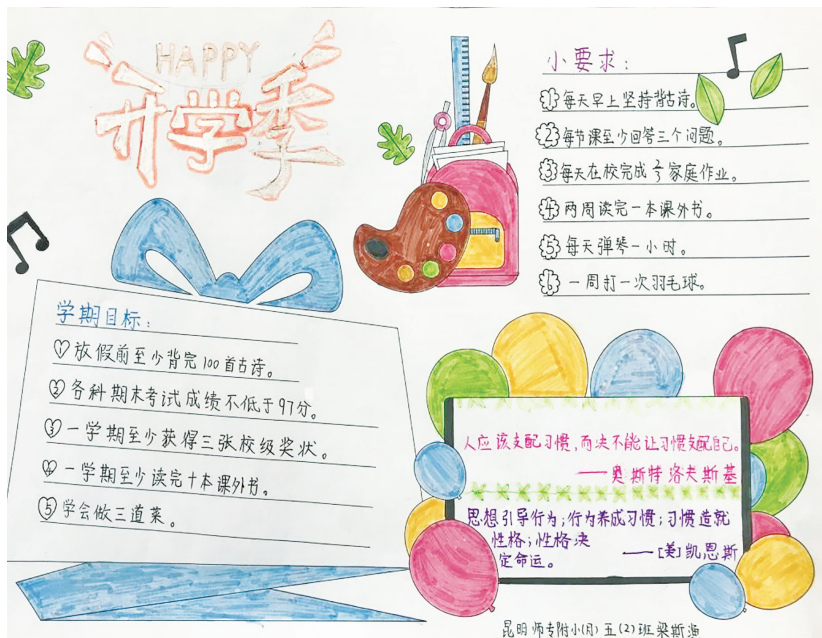 HAPPY
开学季
小要求：
①每天早上坚持背古诗。
②每节课至少回答三个问题。
③每天在校完成2/3家庭作业。
④两周读完一本课外书。
⑤每天弹琴一小时。
⑥一周打一次羽毛球。
学期目标：
①放假前至少背完100首古诗。
②各科期末考试成绩不低于97分。
③一学期至少获得三张校级奖状。
④一学期至少读完十本课外书。
⑤学会做三道菜。
人应该支配习惯，而决不能让习惯支配自己。
——奥斯特洛夫斯基
思想引导行为；行为养成习惯；习惯造就
性格；性格决
定命运。 ——[美]凯恩斯
昆明师专附小(月)五(2)班梁斯